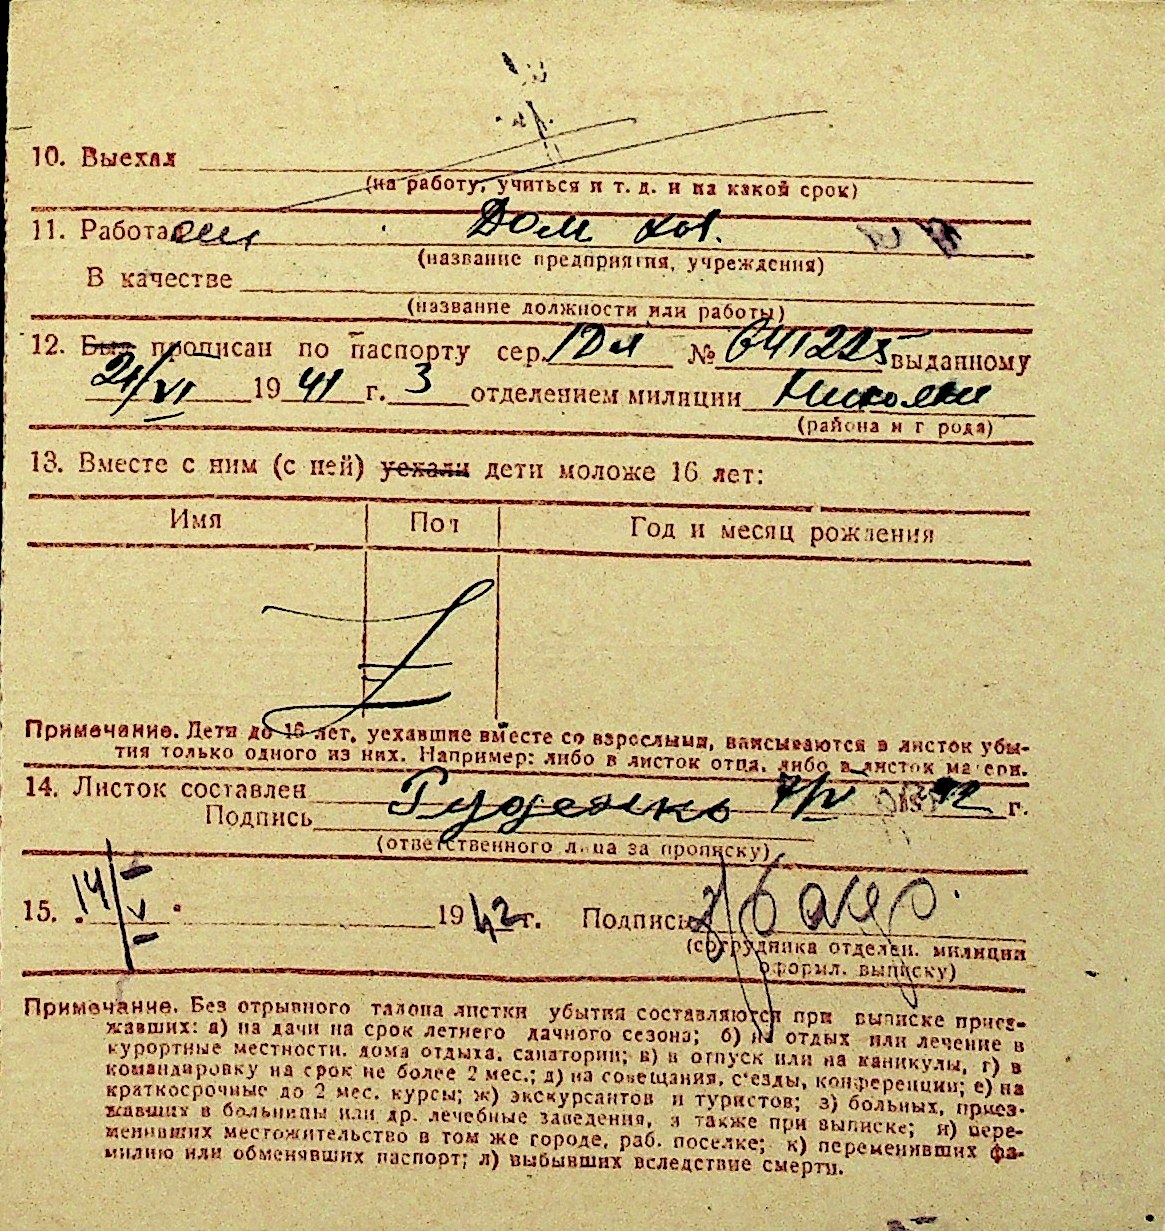 10. Выехал
(на работу, учиться и т. д. и на какой срок)
11. Работа Дом хоз.
(название предприятия, учреждения)
В качестве
(название должности или работы)
12. Был прописан по паспорту сер. № 641225 выданному
21/VI 1941 г. 3 отделением милиции
(района и города)
13. Вместе с ним (с ней) уехали дети моложе 16 лет:
Имя Пол Год и месяц рождения
Примечание. Дети до 16 лет, уехавшие вместе со взрослыми, вписываются в листок убы-
тия только одного из них. Например: либо в листок отца, либо в листок матери.
14. Листок составлен Руденко 7/V 42 г.
Подпись
(ответственного лица за прописку)
15. 14/V 1942 г. Подпись
(сотрудника отделен. милиции
оформл. выписку)
Примечание. Без отрывного талона листки убытия составляются при выписке приез-
жавших: а) на дачи на срок летнего дачного сезона; б) на отдых или лечение в
курортные местности, дома отдыха, санатории; в) в отпуск или на каникулы, г) в
командировку на срок не более 2 мес.; д) на совещания, съезды, конференции; е) на
краткосрочные до 2 мес. курсы; ж) экскурсантов и туристов; з) больных, приез-
жавших в больницы или др. лечебные заведения, а также при выписке; и) пере-
менивших местожительство в том же городе, раб. поселке; к) переменивших фа-
милию или обменявших паспорт; л) выбывших вследствие смерти.